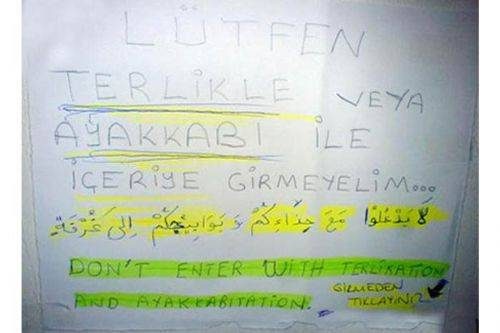 LÜTFEN
TERLİKLE VEYA
AYAKKABI İLE
İÇERİYE GİRMEYELİM...
لا يدخلوا مَعَ حِذَاءِكُمْ وَ بَوَابِيجِكُمْ اِلىَ غُرْفَةِ
DON'T ENTER WITH TERLIKATION
AND AYAKKABITATION.
GİRMEDEN
TIKLAYINIZ